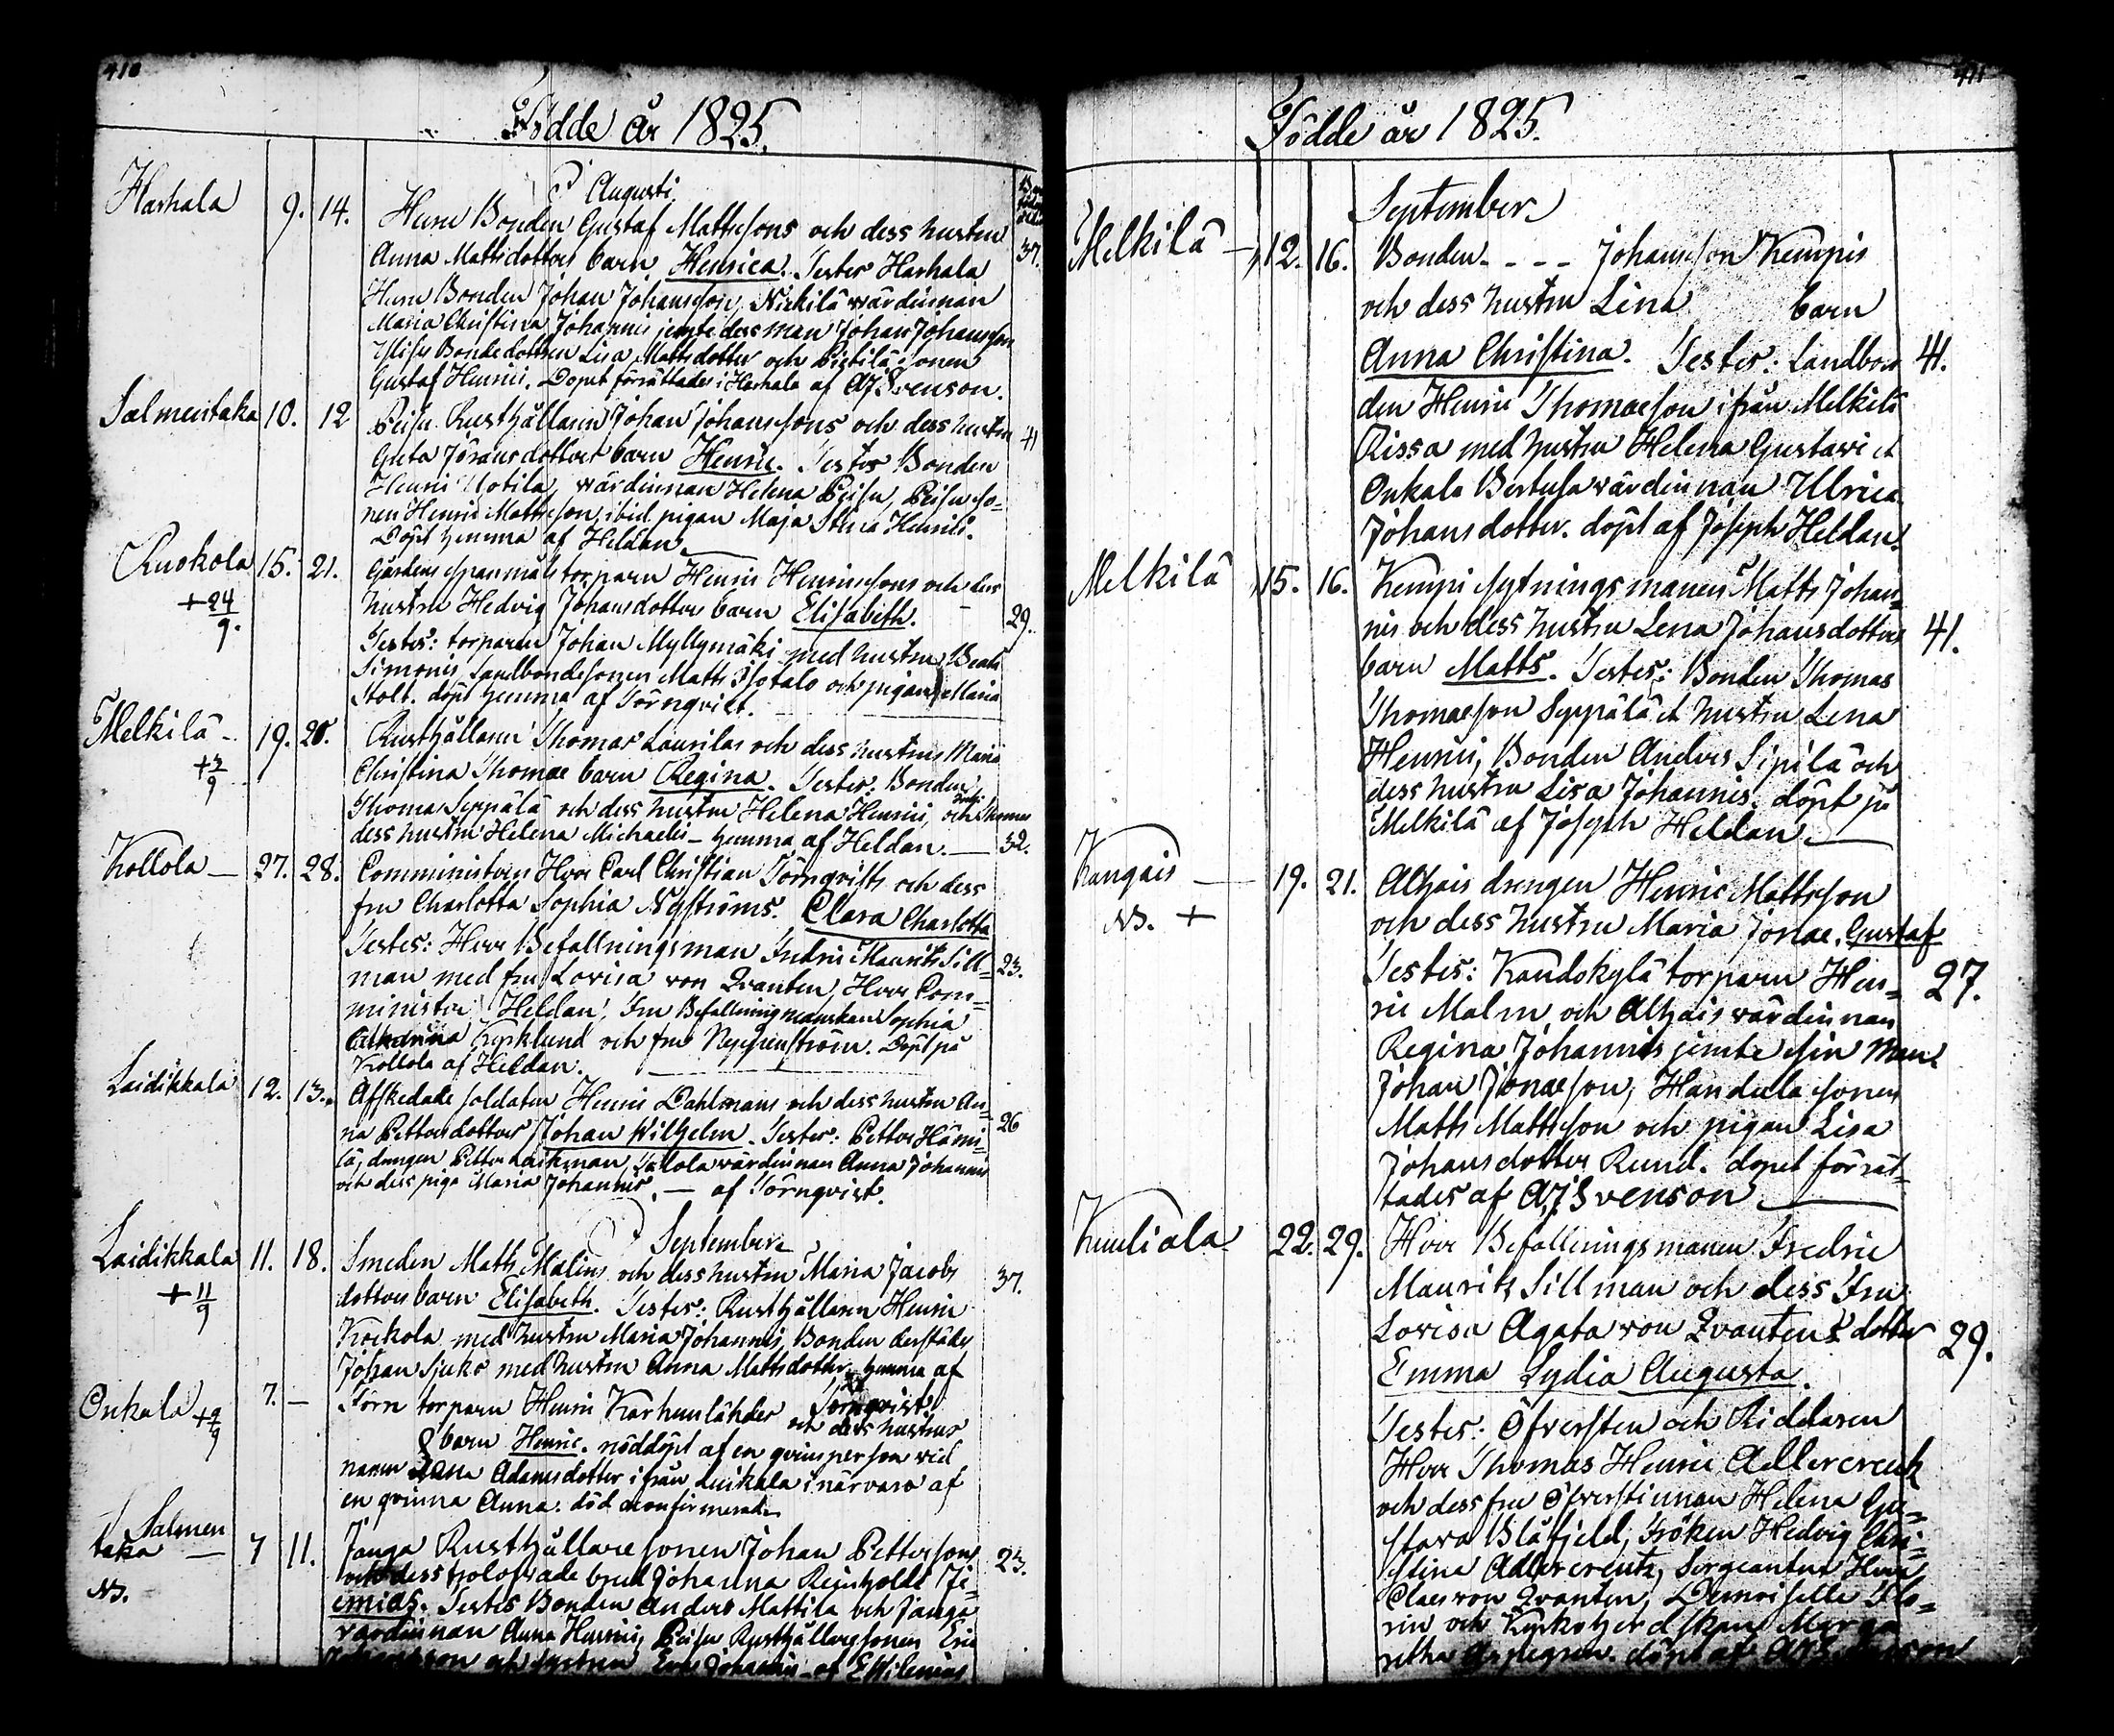 410
Födde år 1825.
Augusti
Harhala 9. 14. Henu Bonden Gustaf Mattssons och dess hustru
Anna Mattsdotters barn Henrica. Testes Harhala 37.
Henu Bonden Johan Johansson, Nickilä wärdinnan
Maria Christina Johannis jemte dess man Johan Johansson
Bondedottren Lisa Mattsdotter och Pietilä sonen
Gustaf Henrici. Dopet förrättades i Harhala af AJSvenson.
Salmentaka 10. 12 Peisu Rusthållaren Johan Johanssons och dess hustru 41
Greta Jöransdotters barn Henric. Testes Bonden
Henric Uotila, wärdinnan Helena Peisu, Peisu so-
nen Henric Mattsson, ibid. pigan Maja Stina Henrici.
Döpt hemma af Heldan.
Ruokola 15. 21. Gårdens spanmåls torparn Henric Henricssons och dess
+24/9. hustru Hedvig Johansdotters barn Elisabeth. 29.
Testes: torparen Johan Myllymäki med hustru Beata
Simonis, Landbondesonen Matts Isotalo och pigan Maria
Stolt. döpt hemma af Törnqvist.
Melkilä - 19. 20. Rusthållaren Thomas Laurilas och dess hustrus Maria
+3/9 Christina Thomae barn Regina. Testes: Bonden
Thomas Seppälä och dess hustru Helena Henrici, och Thomas
dess hustru Helena Michaelis - hemma af Heldan. — 32.
Kollola — 27. 28. Comministern Herr Carl Christian Törnqvists och dess
fru Charlotta Sophia Nyströms. Clara Charlotta
Testes: Herr Befallningsman Fredric Maurits Sill- 23.
man med fru Lovisa von Qvanten, Herr Com-
minister Heldan, Fru Befallningsmanskan Sophia
Catharina Kyrklund och fru Neppenström. Döpt på
Kollola af Heldan.
Laidikkala 12. 13. Afskedade soldaten Henric Dahlmans och dess hustru An-
na Pettersdotters Johan Wilhelm. Testes: Petter Hämi- 26
lä, drengen Petter Laukman, Jallola wärdinnan Anna Johannis
och dess piga Maria Johannis. — af Törnqvist.
September
Laidikkala 11. 18. Smeden Matts Malins och dess hustru Maria Jacobs 37.
+11/9 dotters barn Elisabeth. Testes: Rusthållaren Henric
Kockola med hustru Maria Johannis, Bonden derstädes
Johan Sjuko med hustru Anna Mattsdotter, hemma af
Törnqvist.
Onkala +9/9 7. — Törn torparn Henric Karhunlähdes och dess hustrus
barn Henric. nöddöpt af en qvinsperson wid
namn Anna Adamsdotter ifrån Luikala i närvaro af
en qvinna Anna. död oconfirmerad.
Salmen
taka — 7 11. Janga Rusthållare sonen Johan Petterssons 23.
NB. och dess trolofvade brud Johanna Reinholdi Je-
emias. Testes Bonden Anders Mattila och Janga
wärdinnan Anna Henrici, Peisu Rusthållarsonen Eric
411
Födde år 1825.
September
Melkilä — 12. 16. Bonden - - - Johansson Kempis
och dess hustru Lina barn
Anna Christina. Testes: Landbon 41.
den Henric Thomaeson ifrån Melkilä
Rissa med hustru Helena Gustavi et
Onkala Bertusa wärdinnan Ulrica
Johansdotter. döpt af Joseph Heldan.
Melkilä 15. 16. Kempi sytningsmanen Matts Johan-
nis och dess hustru Lena Johansdotters 41.
barn Matts. Testes: Bonden Thomas
Thomaeson Seppälä et hustru Lena
Henrici, Bonden Anders Sipilä och
dess hustru Lisa Johannis. döpt på
Melkilä af Joseph Heldan.
Kangais — 19. 21. Alhais drengen Henric Mattsson
NB. + och dess hustru Maria Jonae. Gustaf
Testes: Kandokylä torparn Hen- 27.
ric Malm och Alhais wärdinnan
Regina Johannis jemte sin man
Johan Jonaeson, Handula sonen
Matts Mattsson och pigan Lisa
Johansdotter Rund. dopet förrät-
tades af AJSvenson
Kuuliala 22. 29. Herr Befallningsmanen Fredric
Maurits Sillman och dess Fru
Lovisa Agata von Qvantens dotter 29.
Emma Lydia Augusta.
Testes: Öfversten och Riddaren
Herr Thomas Henric Adlercreutz
och dess fru Öfverstinnan Helena Gu-
stava Blåfjeld, Fröken Hedvig Chri-
stina Adlercreutz, Sergeanten Herr
Claes von Qvanten, Demoiselle Flo-
rin och Kyrkoherdskan Marga
retha döpt af AJSvenson